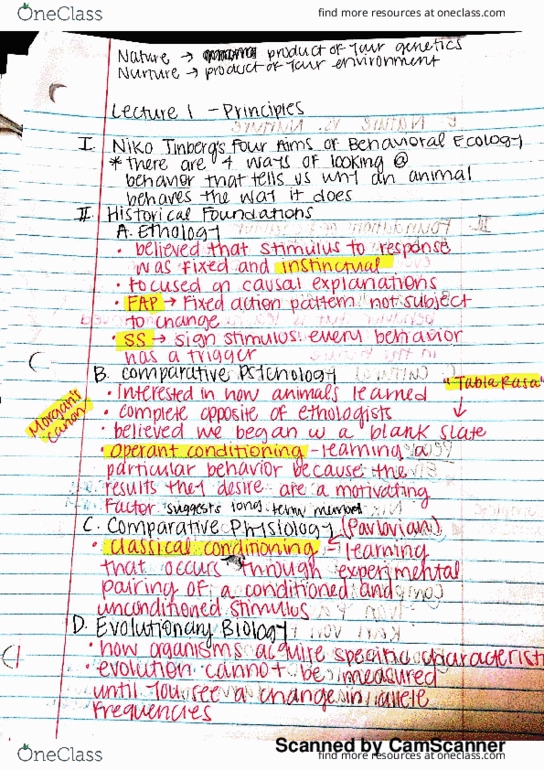 OneClass
find more resources at oneclass.com
Nature → product of your genetics
Nurture → product of your environment
Lecture 1 - Principles
I. Niko Tinberg's Four Aims of Behavioral Ecology
* there are 4 ways of looking @
behavior that tells us why an animal
behaves the way it does
II. Historical Foundations
A. Ethology
• believed that stimulus to response
was fixed and instinctual
• focused on causal explanations
• FAP → Fixed action pattern: not subject
to change
• SS → sign stimulus: every behavior
has a trigger
B. Comparative Psychology
"Tabla Rasa"
• interested in how animals learned
• complete opposite of ethologists
Morgan's
canon
• believed we began w a blank slate
• operant conditioning - learning a
particular behavior because the
results they desire are a motivating
factor suggests long term memory
C. Comparative Physiology (Pavlovian)
• classical conditioning - learning
that occurs through experimental
pairing of a conditioned and
unconditioned stimulus
D. Evolutionary Biology
• how organisms acquire specific characterist
• evolution cannot be measured
until you see a change in allele
frequencies
Scanned by CamScanner
OneClass
find more resources at oneclass.com